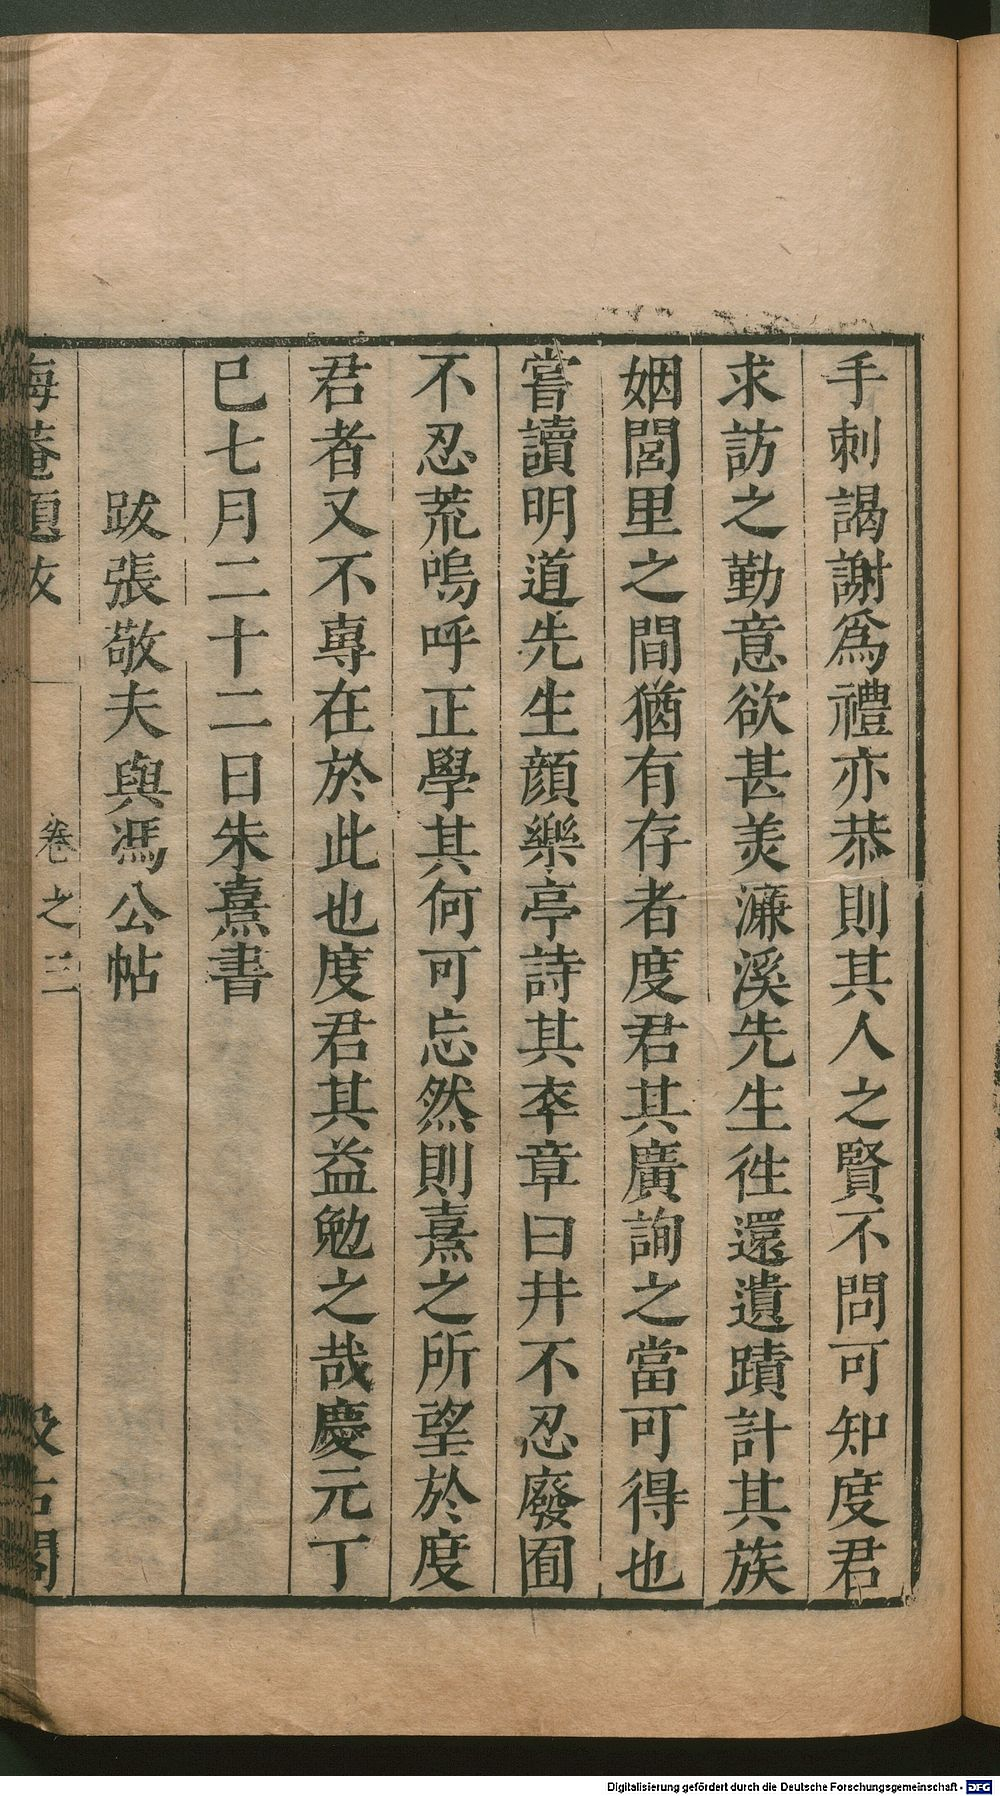 手刺謁謝爲禮亦恭則其人之賢不問可知度君
求訪之勤意欲甚美濂溪先生徃還遺蹟計其族
姻閭里之間猶有存者度君其廣詢之當可得也
嘗讀明道先生顔樂亭詩其卒章曰井不忍廢囿
不忍荒嗚呼正學其何可忘然則熹之所望於度
君者又不專在於此也度君其益勉之哉慶元丁
巳七月二十二日朱熹書
跋張敬夫與馮公帖
海菴題跋 卷之三 汲古閣
Digitalisierung gefördert durch die Deutsche Forschungsgemeinschaft - DFG